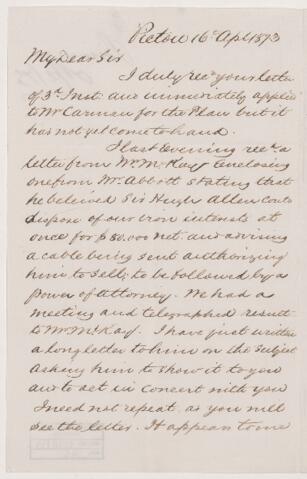 Pictou 16th Apl 1873
My Dear Sir
I duly recd your letter
of 3d Inst and immediately applied
to Mr Carman for the Plan but it
has not yet come to hand.
I last Evening recd a
letter from Mr McKay Enclosing
one from Mr Abbott stating that
he beleived Sir Hugh Allan could
dispose of our iron interests at
once for $80.000 net. and advising
a cable being sent authorizing
him to sell, to be followed by a
power of attorney. We had a
meeting and telegraphed result
to Mr McKay. I have just written
a long letter to him on the subject
asking him to show it to you
and to act in concert with you
I need not repeat as you will
see the letter. It appears to me